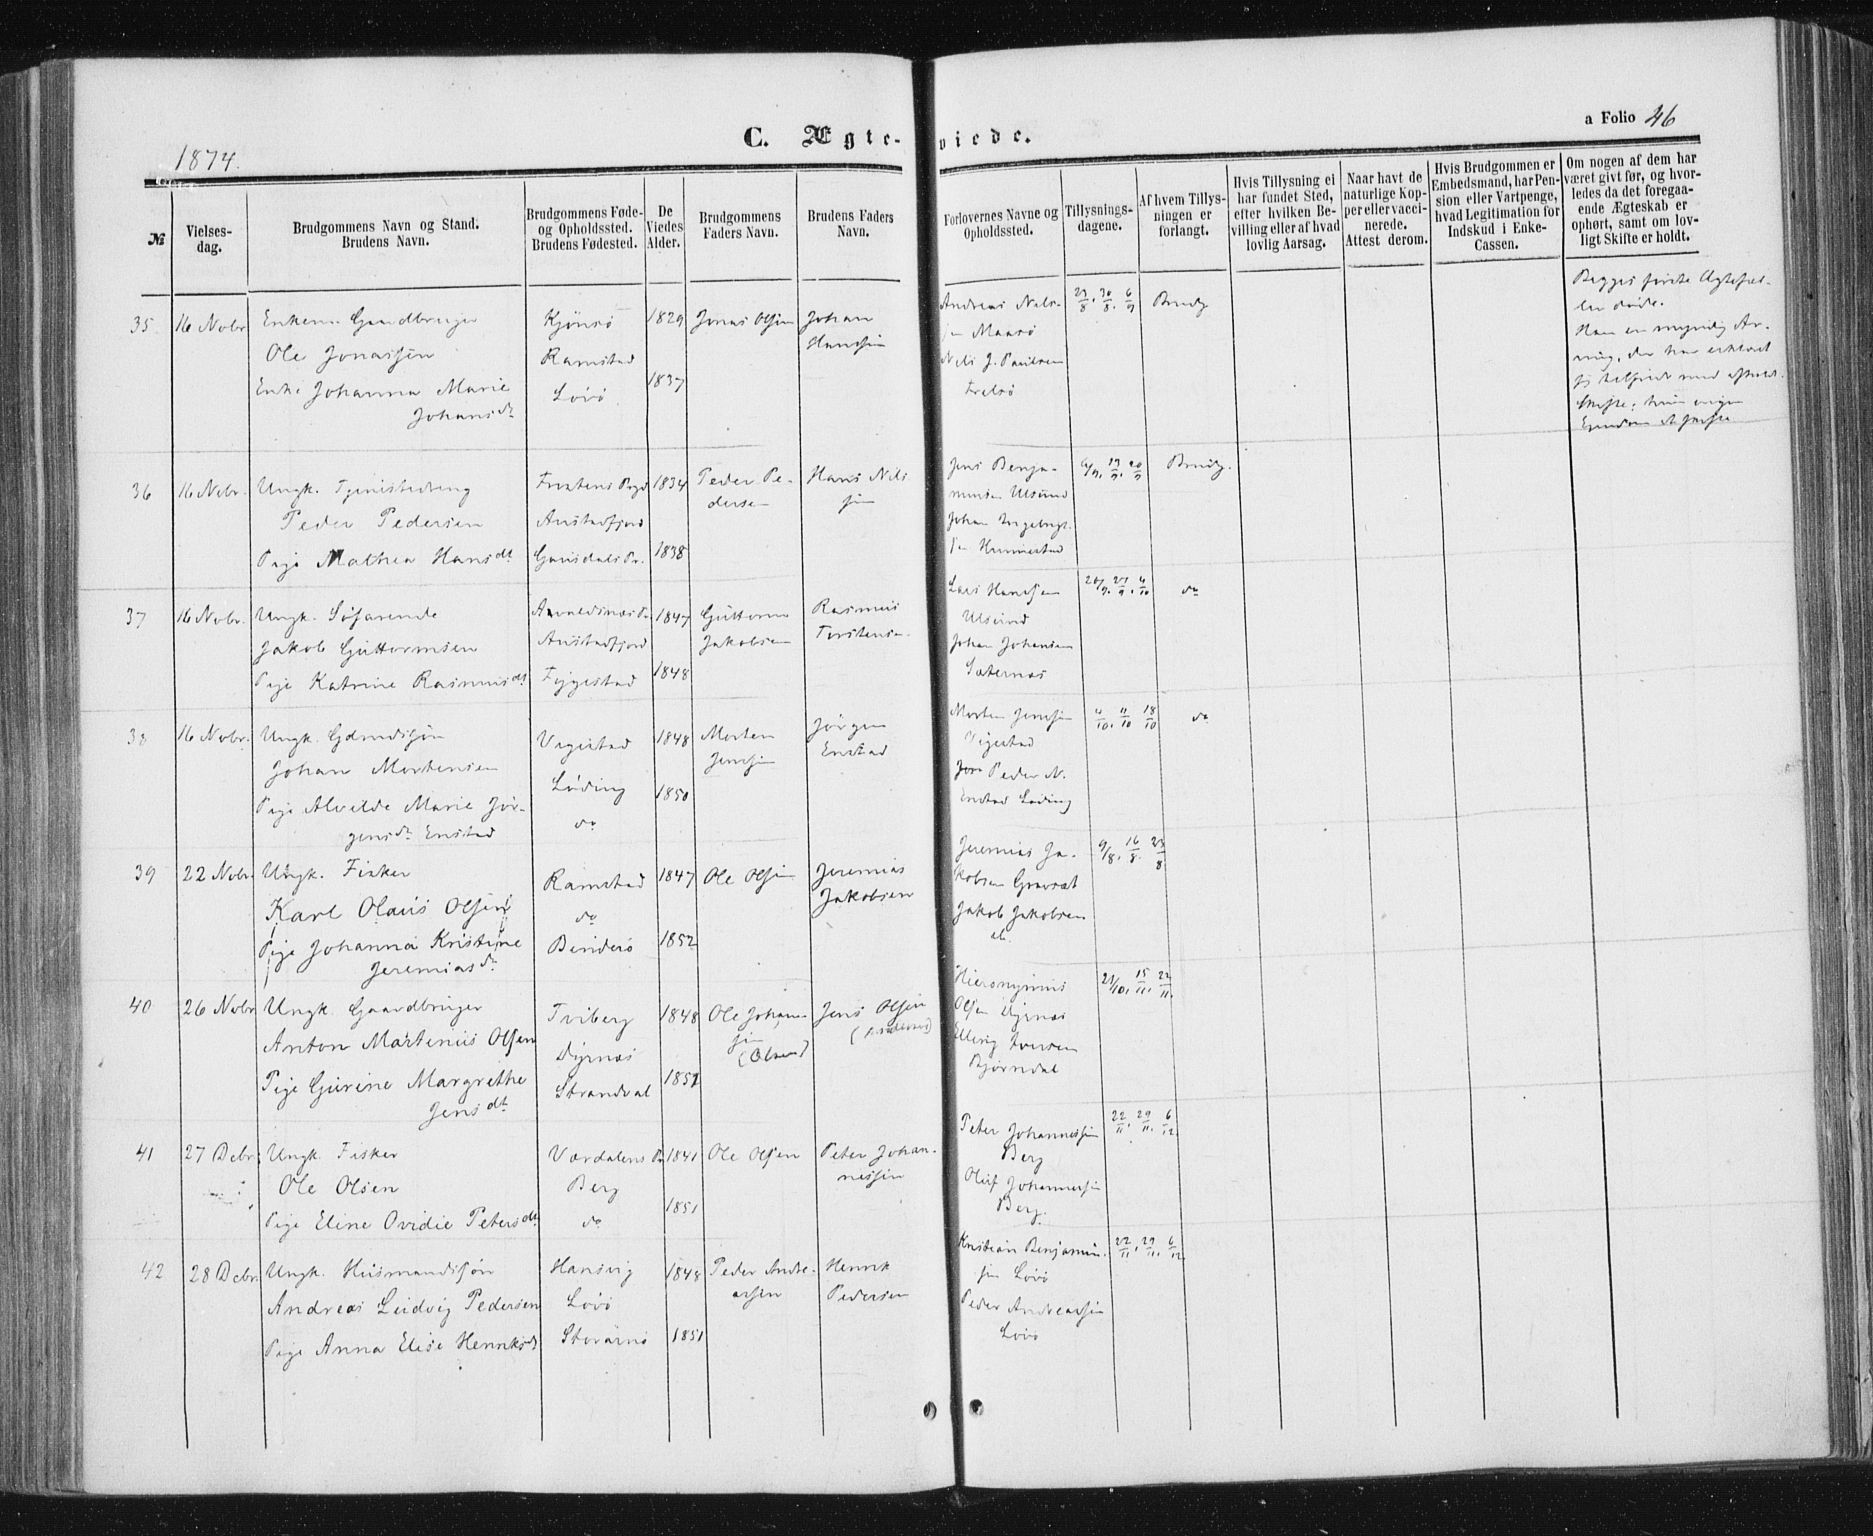 1874.
C. Ægte-viede.
a Folio 46
№
Vielses-
dag.
Brudgommens Navn og Stand.
Brudens Navn.
Brudgommens Føde-
og Opholdssted.
Brudens Fødested.
De
Viedes
Alder.
Brudgommens
Faders Navn.
Brudens Faders
Navn.
Forlovernes Navne og
Opholdssted.
Tillysnings-
dagene.
Af hvem Tillys-
ningen er
forlangt.
Hvis Tillysning ei
har fundet Sted,
efter hvilken Be-
villing eller af hvad
lovlig Aarsag.
Naar havt de
naturlige Kop-
per eller vacci-
nerede.
Attest derom.
Hvis Brudgommen er
Embedsmand, har Pen-
sion eller Vartpenge,
hvad Legitimation for
Indskud i Enke-
Cassen.
Om nogen af dem har
været givt før, og hvor-
ledes da det foregaa-
ende Ægteskab er
ophørt, samt om lov-
ligt Skifte er holdt.
35
16 Novbr
Enkem. Gaardbruger
Ole Jonassen
Enke Johanna Marie
Johansdr
Ramstad
Lövö
1829
1837
Jonas Olsen
Johan
Hanssen
Andreas Nils-
sen Maasö
Nils J. Paulsen
23/8. 30/8. 6/9
Brudg
Begges første Ægtefæl-
ler døde.
36
16 Nobr.
Ungk.
Peder Pedersen
Pige Mathea Hansdt
Austadfjord
Gausdals Pr.
1834
1838
Peder Pe-
dersen
Hans Nils
sen
Jens Benja-
minsen Ulsund
Johan Ingebrigt-
sen
6/9. 13/9. 20/9
Brudg.
37
16 Nobr.
Ungk. Söfarende
Jakob Guttormsen
Pige Katrine Rasmusdt
Austadfjord
1847
1848
Guttorm
Jakobsen
Rasmus
Torstensen
Lars Hanssen
Ulsund
Johan Johansen
Sæternæs
20/9. 27/9. 4/10
do
38
16 Nobr.
Ungk. Gdmdssøn
Johan Mortensen
Pige Alvilde Marie Jör-
gensdr Enstad
Vigestad
Löding
do
1848
1850
Morten
Jenssen
Jörgen
Enstad
Morten Jenssen
Vigestad
Peder N.
Enstad Löding
4/10. 11/10 18/10
do
39
22 Nobr.
Ungk. Fisker
Karl Olaus Olsen
Pige Johanna Kristine
Jeremiasdr
Ramstad
do
Binderö
1847
1852
Ole Olsen
Jeremias
Jakobsen
Jeremias Ja-
kobsen
Jakob Jakobsen
9/8. 16/8. 23/8
40
26 Nobr
Ungk. Gaardbruger
Anton Martinus Olsen
Pige Gurine Margrethe
Jensdt
Tviberg
Dyrnæs
Strandval
1848
1851
Ole Johan-
sen
(Olsen)
Jens Olsen
Hieronymus
Olsen Dyrnæs
Ellerig Iversen
Björndal
15/11. 22/11.
41
27 Debr.
Ungk. Fisker
Ole Olsen
Pige Eline Ovidie Petersdt
Værdalens Pr
Berg
do
1841
1851
Ole Olsen
Peter Johan-
nessen
Peter Johannessen
Berg
Oluf Johannessen
Berg.
22/11. 29/11. 6/12.
42
28 Debr.
Ungk. Husmandssøn
Andreas Ludvig Pedersen
Pige Anna Elise Henriksdt
Hansvig
Lövö
1848
1851
Peder Andre-
assen
Henrik
Pedersen
Kristian Benjamin-
sen Lövö
Peder Andreassen
Lövö
22/11. 29/11. 6/12